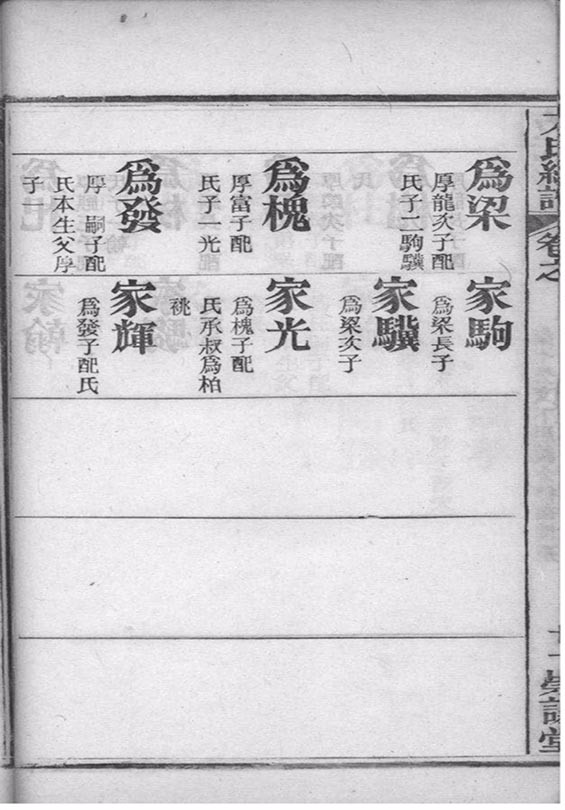 為梁
厚龍次子配
氏子二駒驥
為槐
厚富子配
氏子一光
為發
厚 嗣子配
氏本生父厚
子一
家駒
為梁長子
家驥
為梁次子
家光
為槐子配
氏承叔為柏
祧
家輝
為發子配氏
氏總譜
卷之
崇譜堂